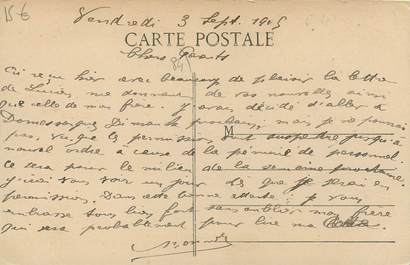 15 €
Vendredi 3 Sept. 1915
CARTE POSTALE
Chers Parents
84
Ai reçu hier avec beaucoup de plaisir la lettre
de Lucien me donnant de vos nouvelles ainsi
que celle de mon frère. J'avais décidé d'aller à
Dimanche prochain, mais je ne pourrai
M
pas, vu que les permissions sont suspendues jusqu'à
nouvel ordre à cause de la pénurie de personnel.
Ce sera pour le milieu de la semaine prochaine.
J'irai vous voir un jour que je serai en
permission. Dans cette bonne attente, je vous
embrasse tous bien fort sans oublier mon frère
qui sera probablement pour lire ma